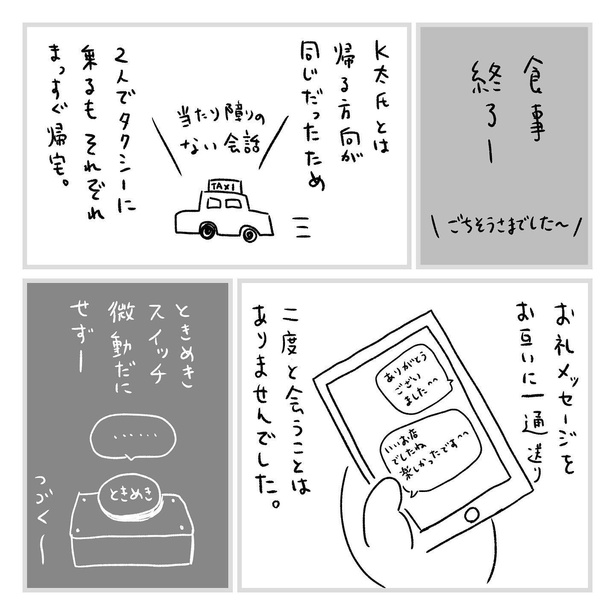 食事
終るー
ごちそうさまでした〜
K太氏とは
帰る方向が
同じだったため
当たり障りの
ない会話
TAXI
2人でタクシーに
乗るもそれぞれ
まっすぐ帰宅。
お礼メッセージを
お互いに一通送り
ありがとう
ござい
ました^^
いいお店
でしたね
楽しかったです^^
二度と会うことは
ありませんでした。
ときめき
スイッチ
微動だに
せずー
……
ときめき
つづくー